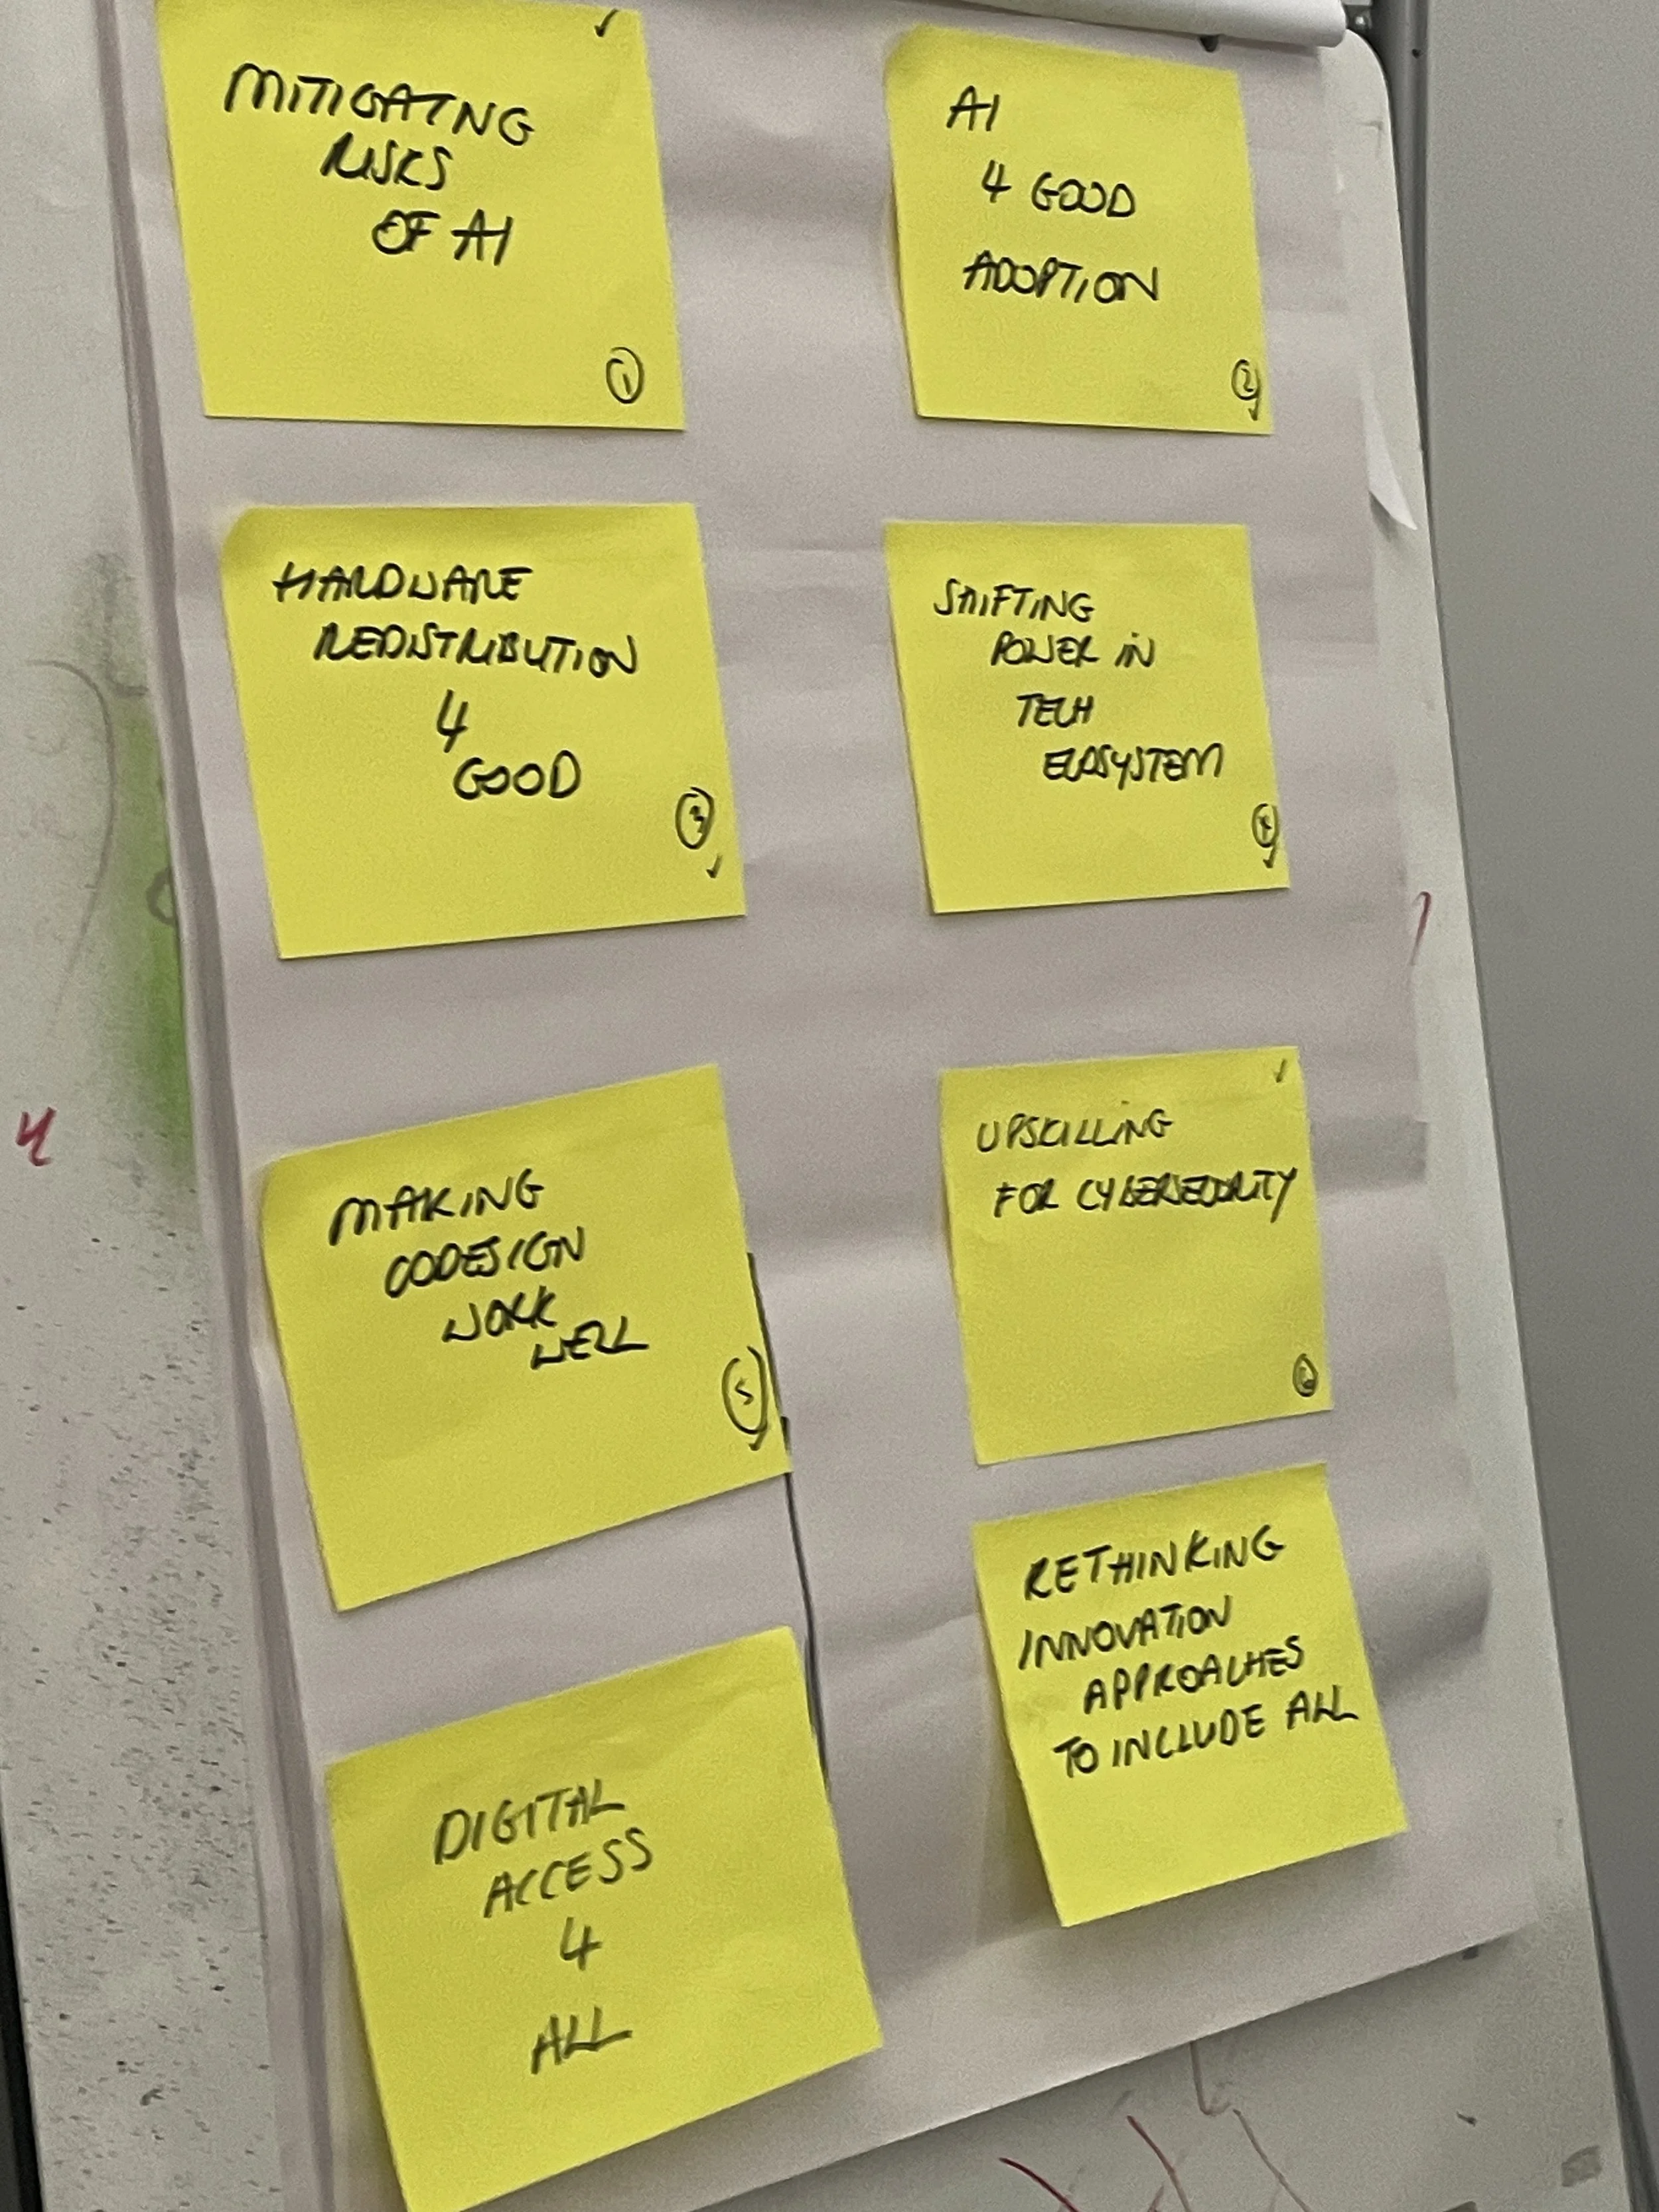 MITIGATNG
RISKS
OF AI
1
AI
4 GOOD
ADOPTION
2
HARDWARE
REDISTRIBUTION
4
GOOD
3
SHIFTING
POWER IN
TECH
ECOSYSTEM
4
MAKING
CODESIGN
WORK
WELL
5
UPSKILLING
FOR CYBERSECURITY
6
DIGITAL
ACCESS
4
ALL
RETHINKING
INNOVATION
APPROACHES
TO INCLUDE ALL
4